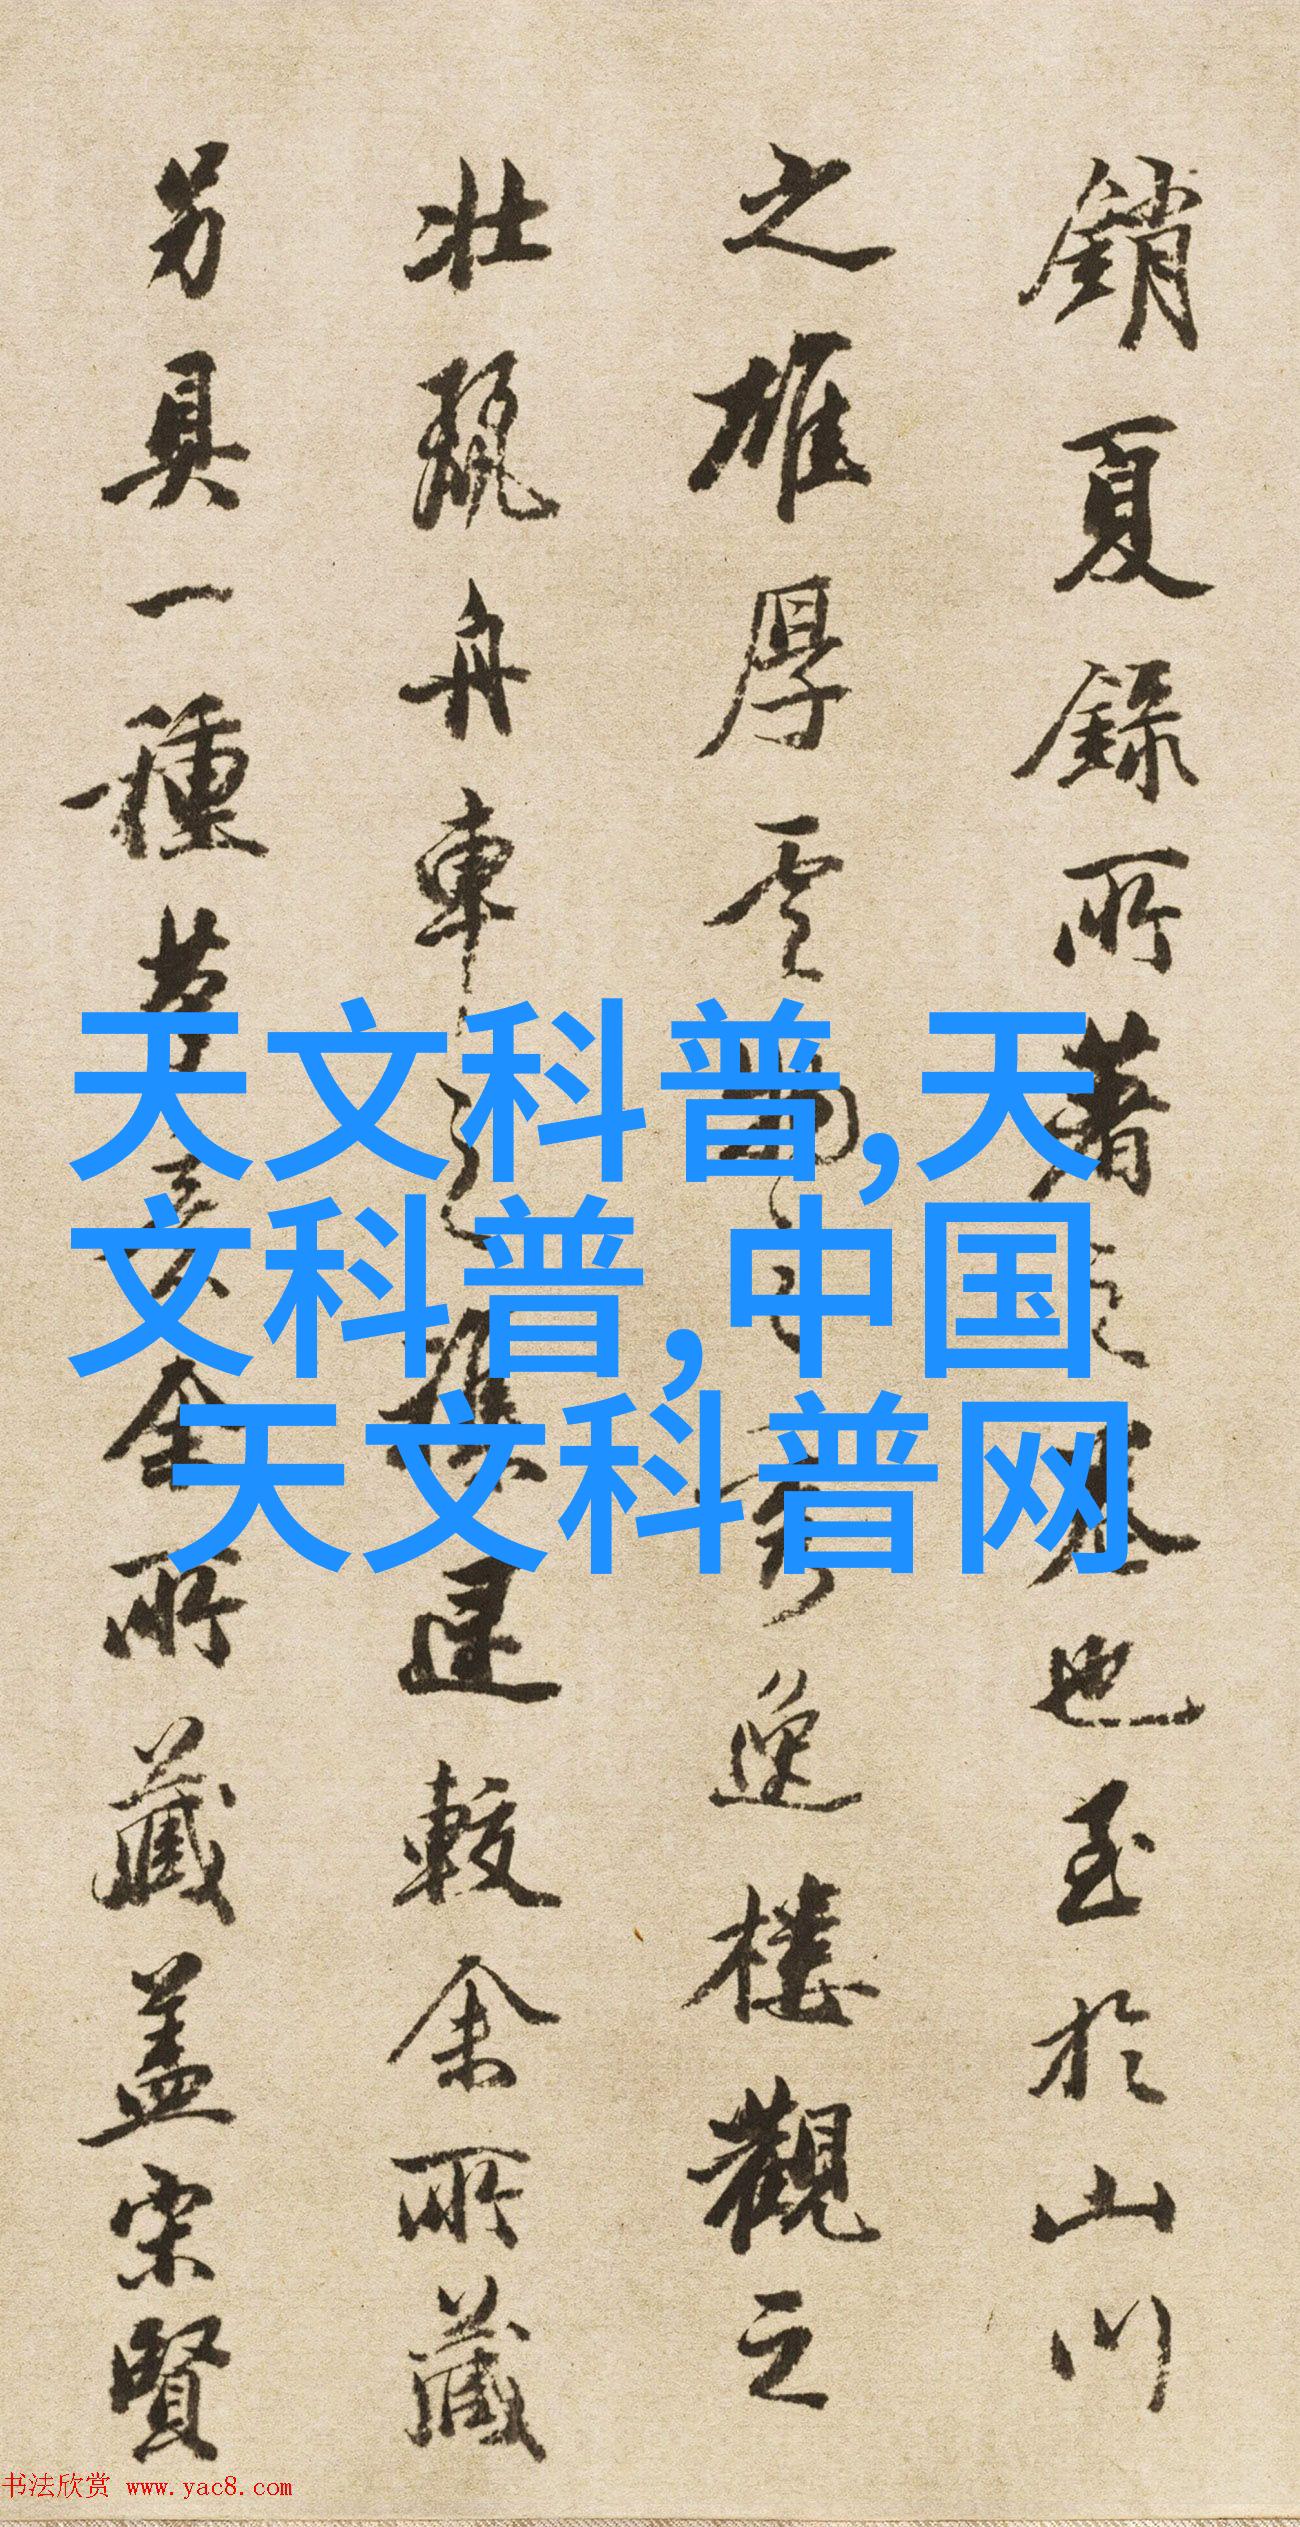 銷夏錄所著
也至於山川
之雄厚雲
逸樓觀之
壯麗舟車
較余所藏
另具一種
余所藏蓋宋賢
天文科普,天
文科普,中国
天文科普网
书法欣赏 www.yac8.com